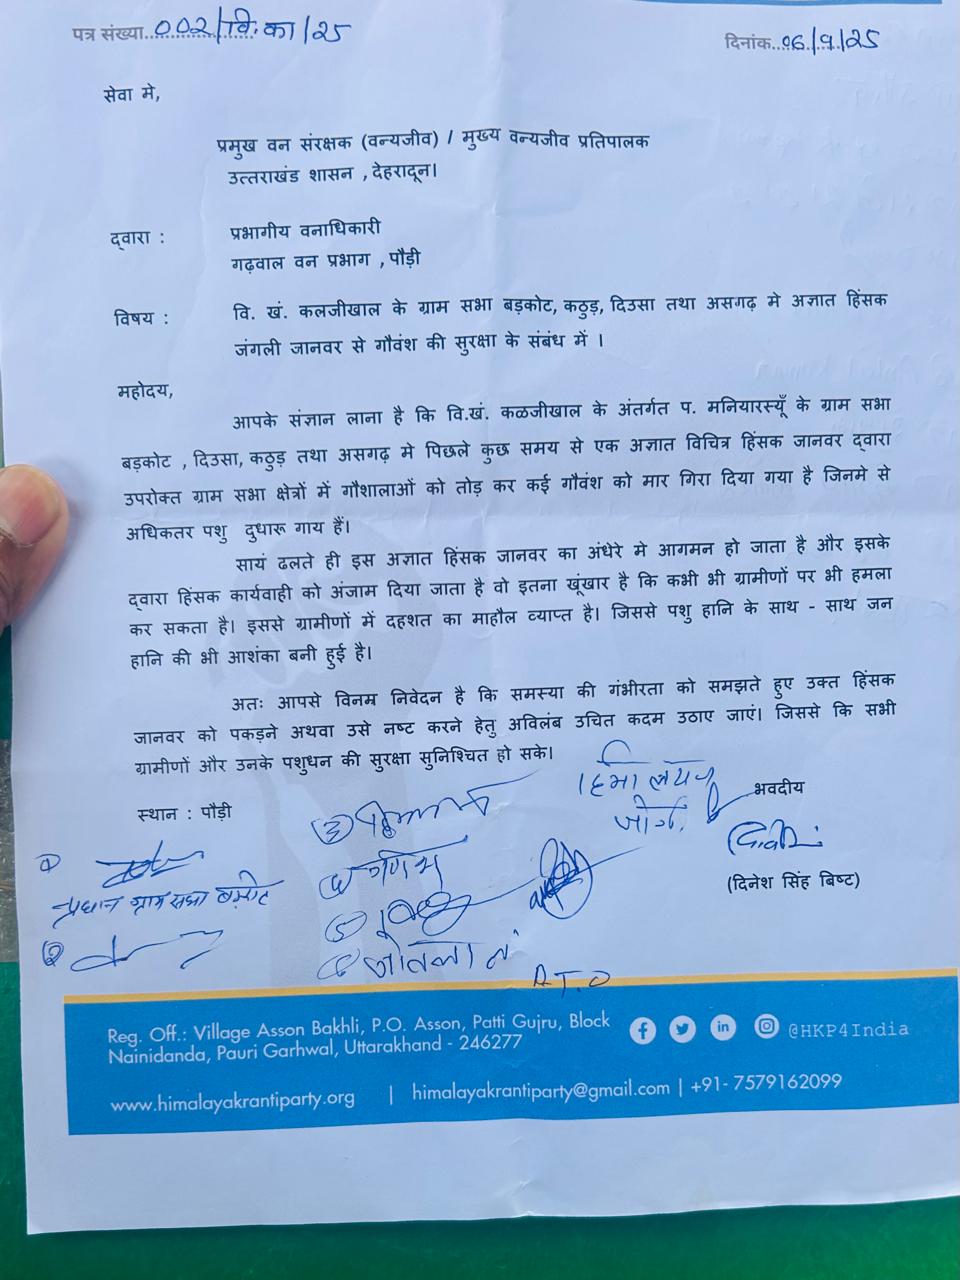 पत्र संख्या...002/वि.का/25
दिनांक...06/9/25
सेवा मे,
प्रमुख वन संरक्षक (वन्यजीव) / मुख्य वन्यजीव प्रतिपालक
उत्तराखंड शासन , देहरादून।
द्वारा :
प्रभागीय वनाधिकारी
गढ़वाल वन प्रभाग , पौड़ी
विषय :
वि. खं. कलजीखाल के ग्राम सभा बड़कोट, कठुड़, दिउसा तथा असगढ़ मे अज्ञात हिंसक
जंगली जानवर से गौवंश की सुरक्षा के संबंध में ।
महोदय,
आपके संज्ञान लाना है कि वि.खं. कळजीखाल के अंतर्गत प. मनियारस्यूँ के ग्राम सभा
बड़कोट , दिउसा, कठुड़ तथा असगढ़ मे पिछले कुछ समय से एक अज्ञात विचित्र हिंसक जानवर द्वारा
उपरोक्त ग्राम सभा क्षेत्रों में गौशालाओं को तोड़ कर कई गौवंश को मार गिरा दिया गया है जिनमे से
अधिकतर पशु दुधारू गाय हैं।
सायं ढलते ही इस अज्ञात हिंसक जानवर का अंधेरे मे आगमन हो जाता है और इसके
द्वारा हिंसक कार्यवाही को अंजाम दिया जाता है वो इतना खूंखार है कि कभी भी ग्रामीणों पर भी हमला
कर सकता है। इससे ग्रामीणों में दहशत का माहौल व्याप्त है। जिससे पशु हानि के साथ - साथ जन
हानि की भी आशंका बनी हुई है।
अतः आपसे विनम्र निवेदन है कि समस्या की गंभीरता को समझते हुए उक्त हिंसक
जानवर को पकड़ने अथवा उसे नष्ट करने हेतु अविलंब उचित कदम उठाए जाएं। जिससे कि सभी
ग्रामीणों और उनके पशुधन की सुरक्षा सुनिश्चित हो सके।
स्थान : पौड़ी
भवदीय
(दिनेश सिंह बिष्ट)
①
प्रधान ग्राम सभा
②
③
P.T.O
Reg. Off.: Village Asson Bakhli, P.O. Asson, Patti Gujru, Block
Nainidanda, Pauri Garhwal, Uttarakhand - 246277
@HKP4India
www.himalayakrantiparty.org | himalayakrantiparty@gmail.com | +91- 7579162099